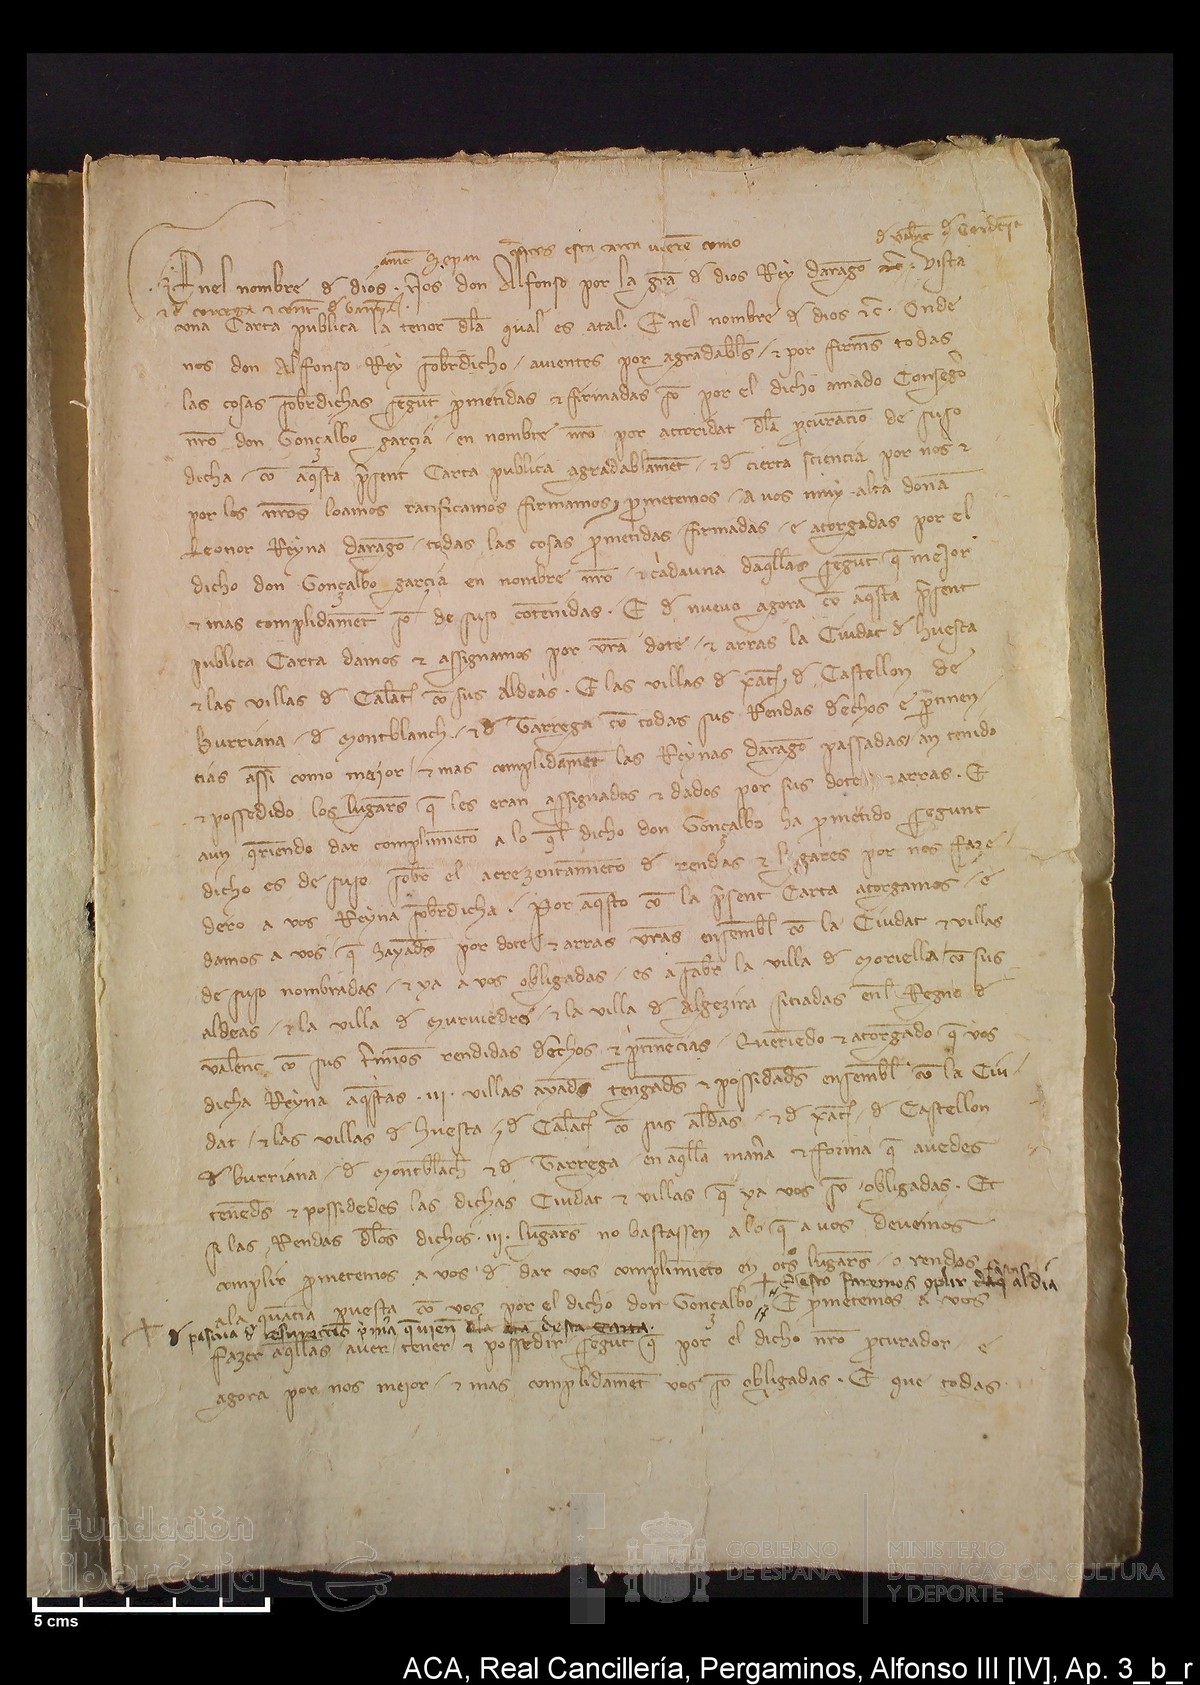 amen Sepan quantos esta carta vieren como
d valenc d Cerdenya
Enel nombre d dios. Nos don Alfonso por la gra d dios Rey darago vista
una Carta publica la tenor dla qual es atal. Enel nombre d dios etc. Onde
nos don Alfonso Rey sobrdicho / avientes por agradabls / et por firms todas
las cosas sobrdichas segunt prometidas et firmadas so por el dicho amado Consegero
nro don Gonçalbo garçia / en nombre nro por actoridat dla procuracio de suso
dicha / co aqsta psent Carta publica agradablament / et d cierta sciencia por nos et
por los nros loamos ratificamos firmamos prometemos / A vos muy alta dona
Leonor Reyna darago / todas las cosas prometidas firmadas / e atorgadas por el
dicho don Gonçalbo garçia en nombre nro / et cadauna daqllas segunt q mejor
et mas complidamet so de suso contenidas. E d nuevo agora co aqsta psent
publica Carta damos et assignamos por vra dote / et arras la Ciudat d huesca
et las villas d Calat co sus Aldeas. E las villas d xat d Castellon de
burriana / d Montblanch / et d Tarrega co todas sus Rendas dechos e ptinen
cias assi como mejor / et mas complidamet las Reynas darago passadas / an tenido
et possedido los lugars q les eran assignados et dados por sus dote et arras. E
aun qriendo dar complimieto a lo ql dicho don Gonçalbo ha prometido segunt
dicho es de suso sobr el acrezentamieto d rendas et lugares por nos faze
dero a vos Reyna sobrdicha. Por aqsto co la psent Carta atorgamos / e
damos a vos q hayads por dote et arras vras ensembl co la Ciudat et villas
de suso nombradas / et ya a vos obligadas / es a sabr la villa d Moriella co sus
aldeas / et la villa d Murviedro / et la villa d Algezira sitiadas enl Regno d
valenc co sus tminos rendidas dechos et ptinecias / Queriedo et atorgado q vos
dicha Reyna aqstas .iii. villas ayads tengads et possidads ensembl co la Ciu
dat / et las villas d huesca / d Calat co sus aldeas / et d xat / d Castellon
d burriana / d Montblach et d Tarrega / en aqlla manra et forma q avedes
teneds et possidedes las dichas Ciudat et villas q ya vos so obligadas. Et
si las Rendas dlos dichos .iii. lugars no bastassen alo q a vos devemos
complir prometemos a vos d dar vos complimieto en otros lugars / o rendas
Esto faremos complir daq al dia
ala quatia puesta co vos por el dicho don Gonçalbo E prometemos a vos
d pascua d resurreccio prima qvien dla data desta carta.
fazer aqllas aver tener et possedir segut q por el dicho nro pcurador / e
agora por nos mejor / et mas complidamet vos so obligadas. E que todas
ACA, Real Cancillería, Pergaminos, Alfonso III [IV], Ap. 3_b_r
5 cms
Fundación
iberCaja
GOBIERNO
DE ESPAÑA
MINISTERIO
DE EDUCACIÓN, CULTURA
Y DEPORTE